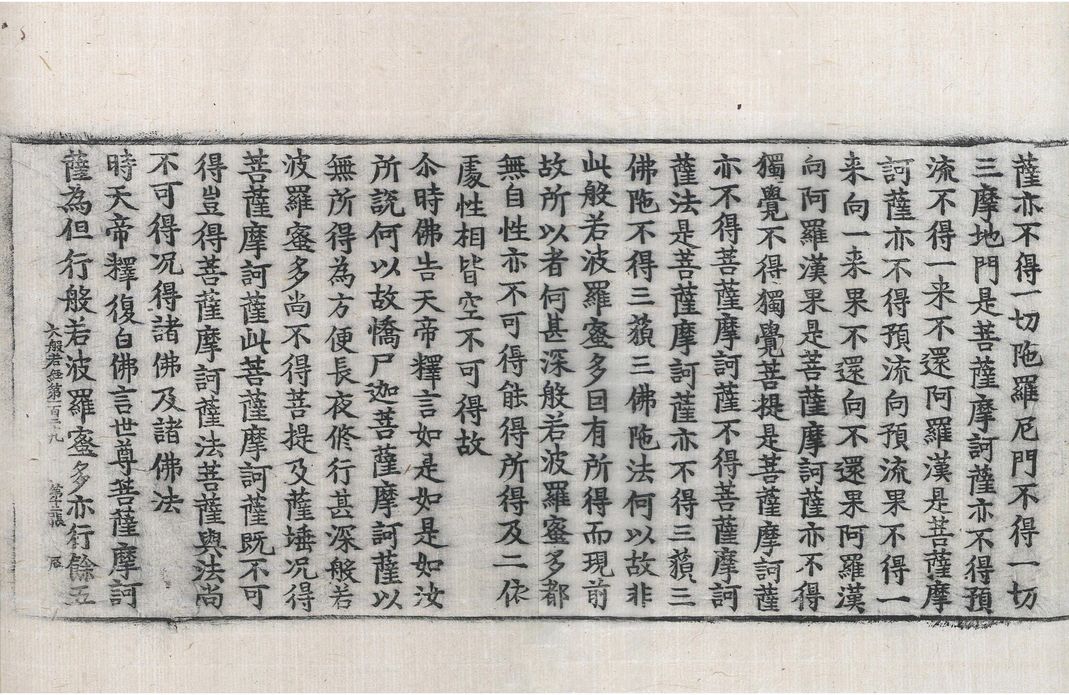 薩亦不得一切陁羅尼門不得一切
三摩地門是菩薩摩訶薩亦不得預
流不得一来不還阿羅漢是菩薩摩
訶薩亦不得預流向預流果不得一
来向一来果不還向不還果阿羅漢
向阿羅漢果是菩薩摩訶薩亦不得
獨覺不得獨覺菩提是菩薩摩訶薩
亦不得菩薩摩訶薩不得菩薩摩訶
薩法是菩薩摩訶薩亦不得三藐三
佛陁不得三藐三佛陁法何以故非
此般若波羅蜜多因有所得而現前
故所以者何甚深般若波羅蜜多都
無自性亦不可得能得所得及二依
處性相皆空不可得故
尒時佛告天帝釋言如是如是如汝
所說何以故憍尸迦菩薩摩訶薩以
無所得為方便長夜修行甚深般若
波羅蜜多尚不得菩提及薩埵况得
菩薩摩訶薩此菩薩摩訶薩既不可
得豈得菩薩摩訶薩法菩薩與法尚
不可得况得諸佛及諸佛法
時天帝釋復白佛言世尊菩薩摩訶
薩為但行般若波羅蜜多亦行餘五
般若経第百九 第張